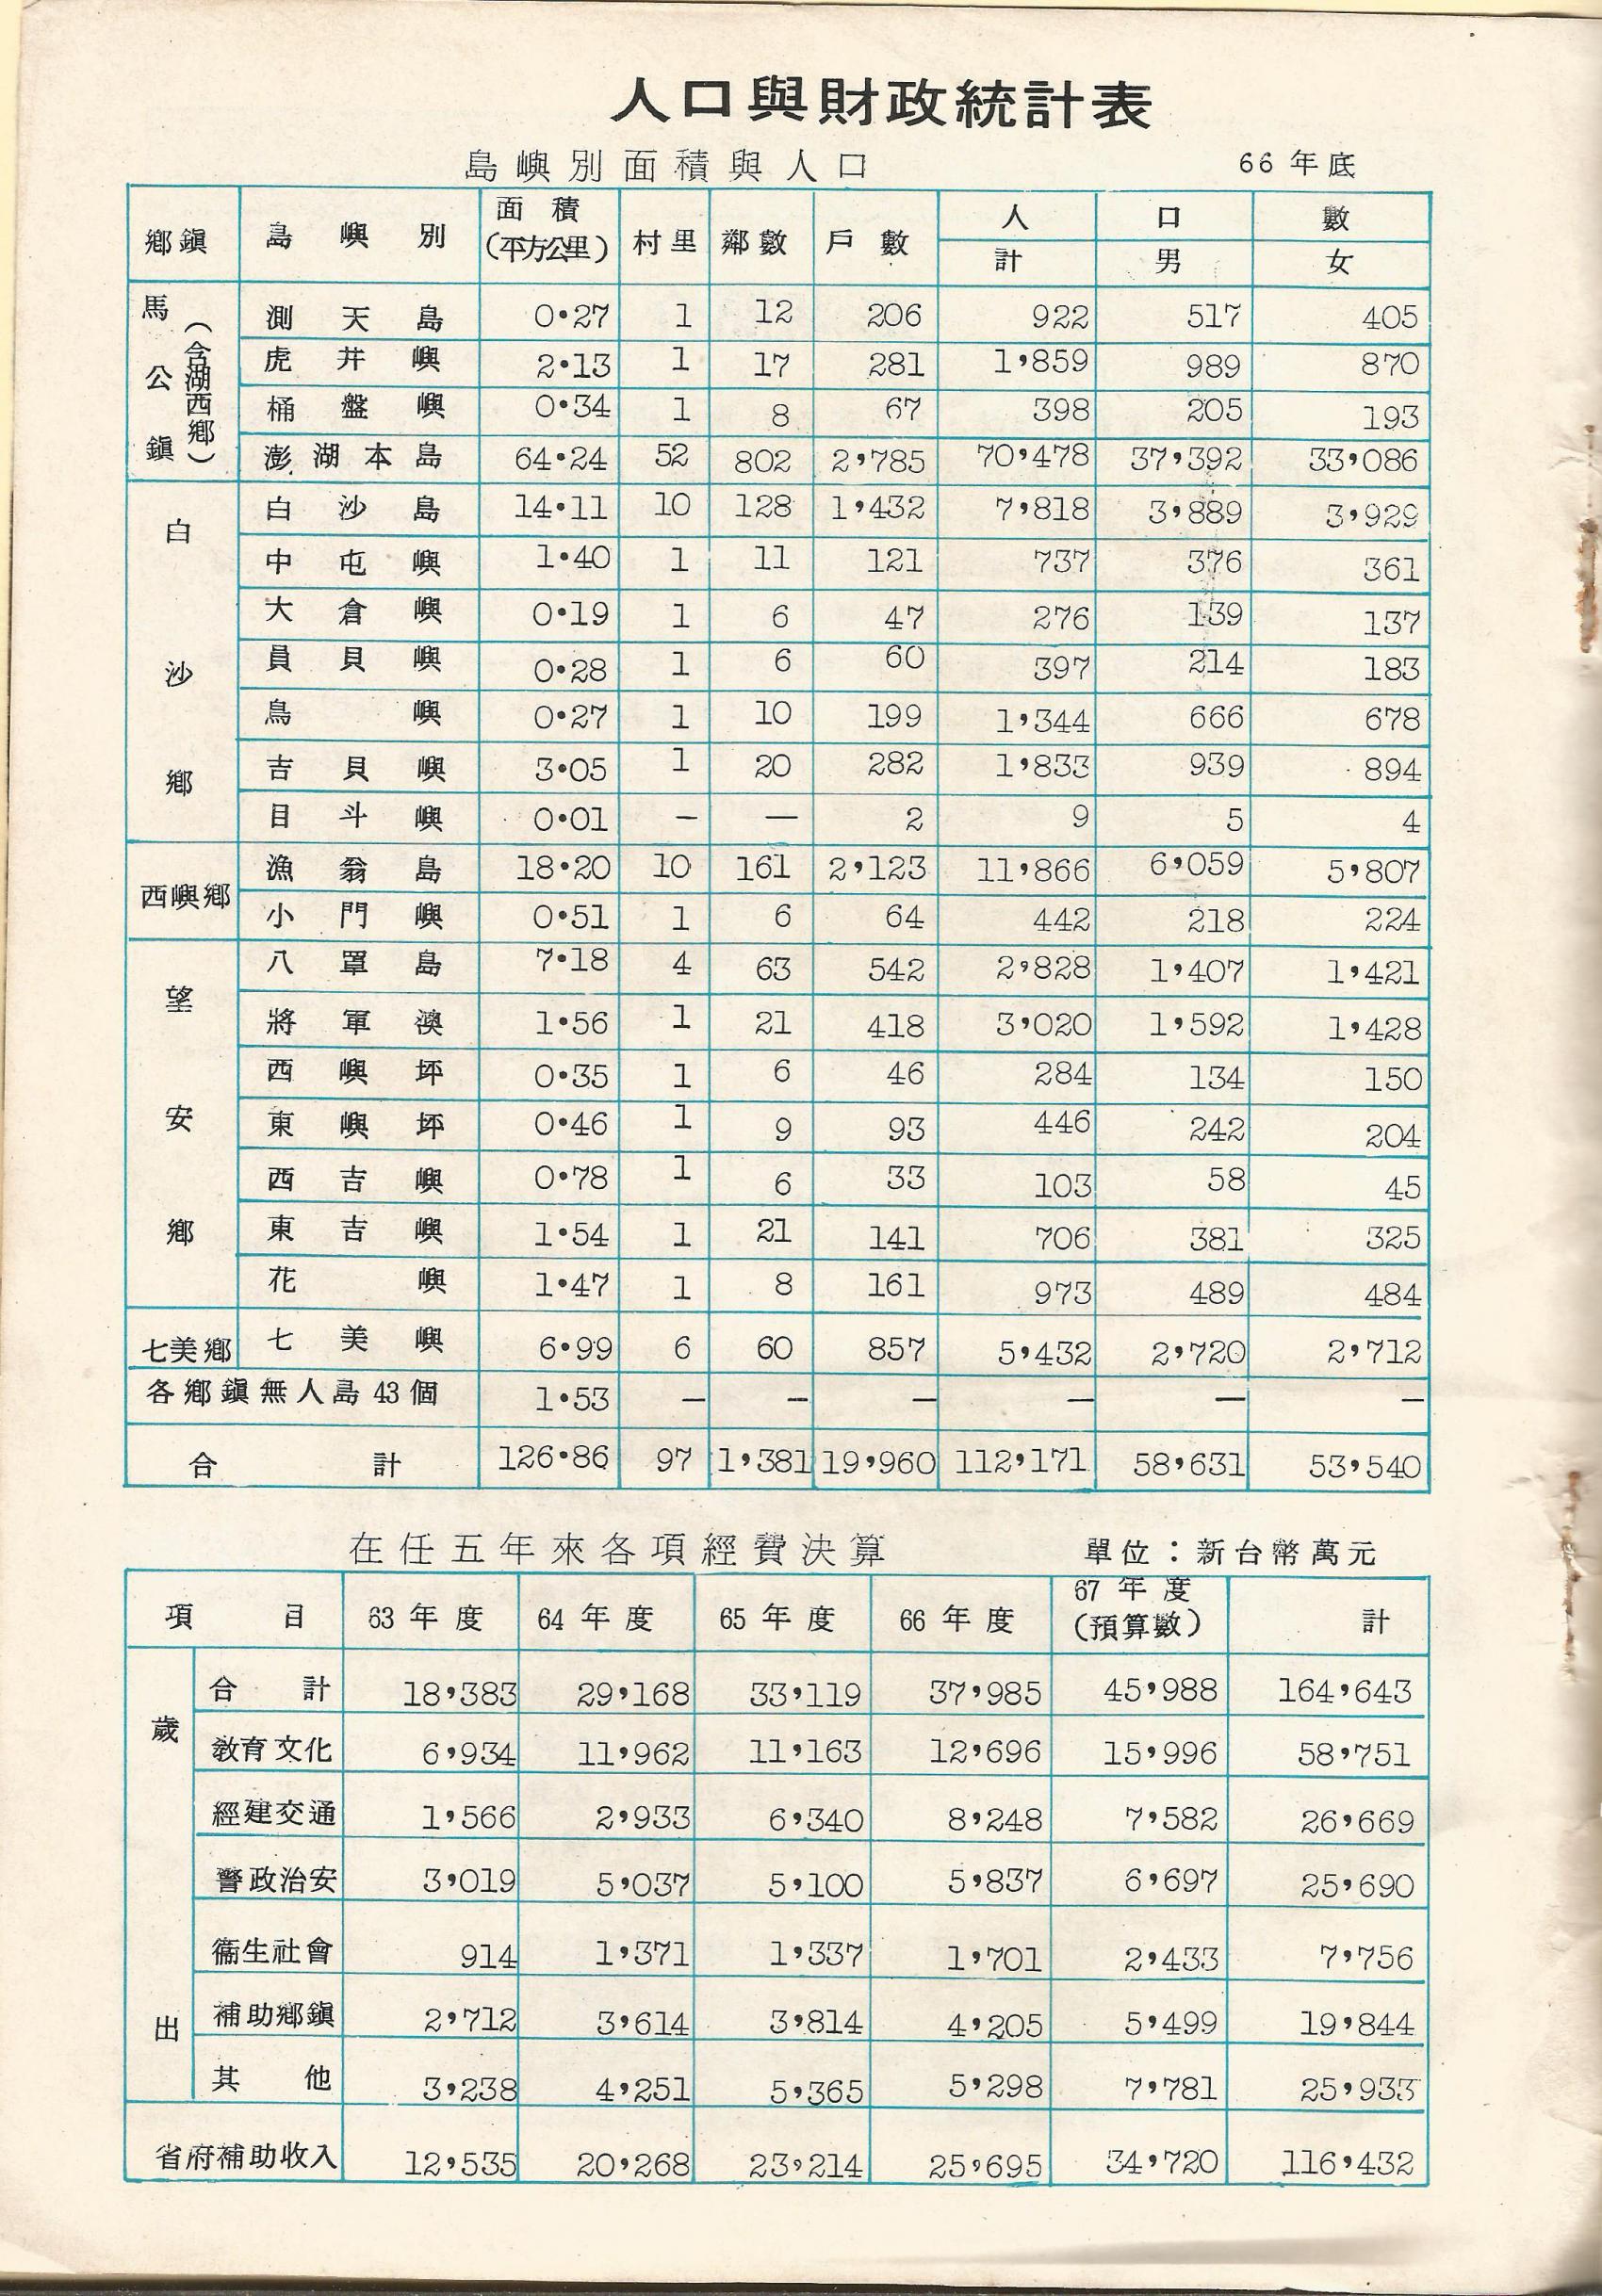 人口與財政統計表
島嶼別面積與人口 66年底
鄉鎮 島嶼別 面積(平方公里) 村里 鄰數 戶數 人口數 計 男 女
馬公鎮(含湖西鄉)
測天島 0·27 1 12 206 922 517 405
虎井嶼 2·13 1 17 281 1,859 989 870
桶盤嶼 0·34 1 8 67 398 205 193
澎湖本島 64·24 52 802 2,785 70,478 37,392 33,086
白沙鄉
白沙島 14·11 10 128 1,432 7,818 3,889 3,929
中屯嶼 1·40 1 11 121 737 376 361
大倉嶼 0·19 1 6 47 276 139 137
員貝嶼 0·28 1 6 60 397 214 183
鳥嶼 0·27 1 10 199 1,344 666 678
吉貝嶼 3·05 1 20 282 1,833 939 894
目斗嶼 0·01 — — 2 9 5 4
西嶼鄉
漁翁島 18·20 10 161 2,123 11,866 6,059 5,807
小門嶼 0·51 1 6 64 442 218 224
望安鄉
八罩島 7·18 4 63 542 2,828 1,407 1,421
將軍澳 1·56 1 21 418 3,020 1,592 1,428
西嶼坪 0·35 1 6 46 284 134 150
東嶼坪 0·46 1 9 93 446 242 204
西吉嶼 0·78 1 6 33 103 58 45
東吉嶼 1·54 1 21 141 706 381 325
花嶼 1·47 1 8 161 973 489 484
七美鄉 七美嶼 6·99 6 60 857 5,432 2,720 2,712
各鄉鎮無人島43個 1·53 — — — — — —
合計 126·86 97 1,381 19,960 112,171 58,631 53,540
在任五年來各項經費決算 單位：新台幣萬元
項目 63年度 64年度 65年度 66年度 67年度(預算數) 計
歲出
合計 18,383 29,168 33,119 37,985 45,988 164,643
教育文化 6,934 11,962 11,163 12,696 15,996 58,751
經建交通 1,566 2,933 6,340 8,248 7,582 26,669
警政治安 3,019 5,037 5,100 5,837 6,697 25,690
衞生社會 914 1,371 1,337 1,701 2,433 7,756
補助鄉鎮 2,712 3,614 3,814 4,205 5,499 19,844
其他 3,238 4,251 5,365 5,298 7,781 25,933
省府補助收入 12,535 20,268 23,214 25,695 34,720 116,432